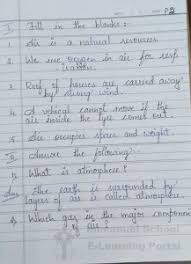 P2
I. Fill in the blanks:
1. Air is a natural resources
2. We use oxygen in air for
3. Roof of houses are carried away
by during wind.
4. A vehical cannot move if the
air inside the tyre comes out.
5. Air occupies space and weight.
II. Answer the following:
1) What is atmosphere?
Ans The earth is surrounded by
layers of air is called atmosphere.
2) Which gas is the major component
of air?
School
E-Learning Portal